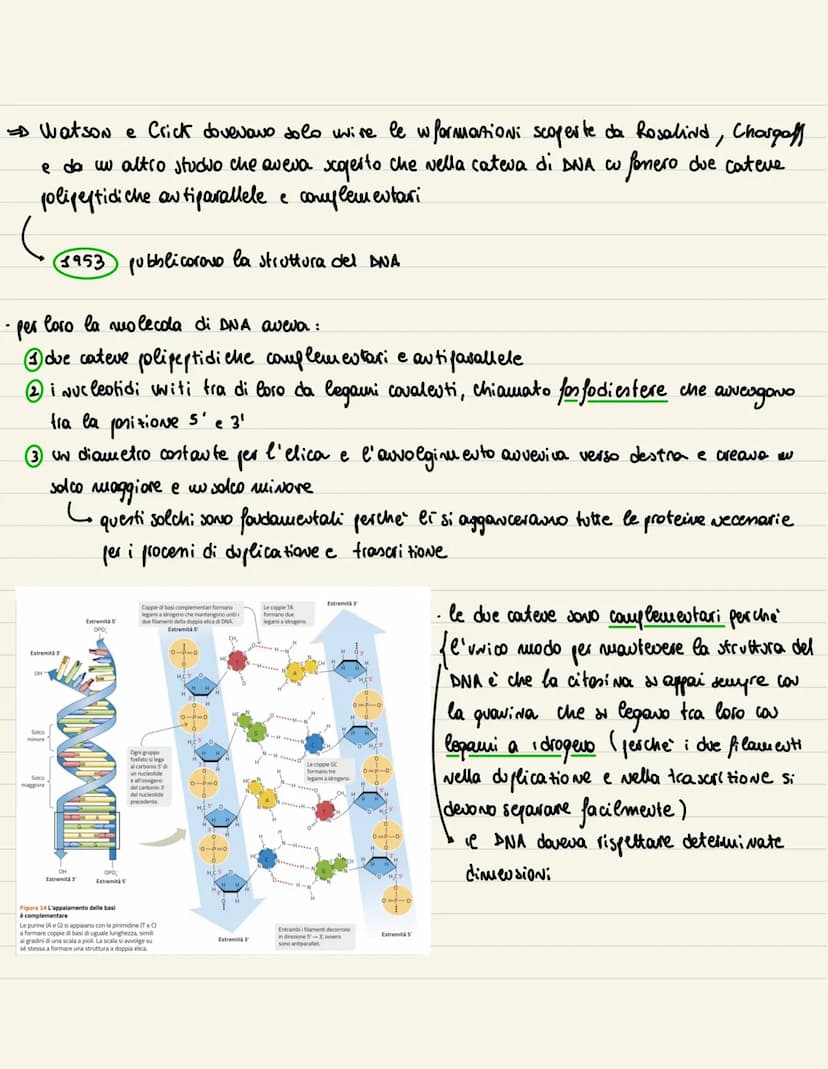 ⇒ Watson e Crick dovevano solo unire le informazioni scoperte da Rosalind, Chargaff
e da un altro studio che aveva scoperto che nella catena di DNA ci fossero due catene
polipeptidiche antiparallele e complementari
1953 pubblicarono la struttura del DNA
· per loro la molecola di DNA aveva:
1 due catene polipeptidiche complementari e antiparallele
2 i nucleotidi uniti tra di loro da legami covalenti, chiamato fosfodiestere che avvengono
tra la posizione 5' e 3'
3 un diametro costante per l'elica e l'avvolgimento avveniva verso destra e creava un
solco maggiore e un solco minore
questi solchi sono fondamentali perché lì si agganceranno tutte le proteine necessarie
per i processi di duplicazione e trascrizione
Coppie di basi complementari formano
legami a idrogeno che mantengono uniti i
due filamenti della doppia elica di DNA.
Le coppie TA
formano due
legami a idrogeno.
Estremità 3'
Estremità 5'
Estremità 5'
Estremità 3'
OH
Solco
minore
Solco
maggiore
Ogni gruppo
fosfato si lega
al carbonio 5' di
un nucleotide
e all'ossigeno
del carbonio 3'
del nucleotide
precedente.
Le coppie GC
formano tre
legami a idrogeno.
OH
Estremità 3'
Estremità 5'
Estremità 3'
Entrambi i filamenti decorrono
in direzione 5' → 3', ovvero
sono antiparalleli.
Estremità 5'
Figura 14 L'appaiamento delle basi
è complementare
Le purine (A e G) si appaiano con le pirimidine (T e C)
a formare coppie di basi di uguale lunghezza, simili
ai gradini di una scala a pioli. La scala si avvolge su
sé stessa a formare una struttura a doppia elica.
· le due catene sono complementari perché
l'unico modo per mantenere la struttura del
DNA è che la citosina si appai sempre con
la guanina che si legano tra loro con
legami a idrogeno (perché i due filamenti
nella duplicazione e nella trascrizione si
devono separare facilmente)
il DNA doveva rispettare determinate
dimensioni